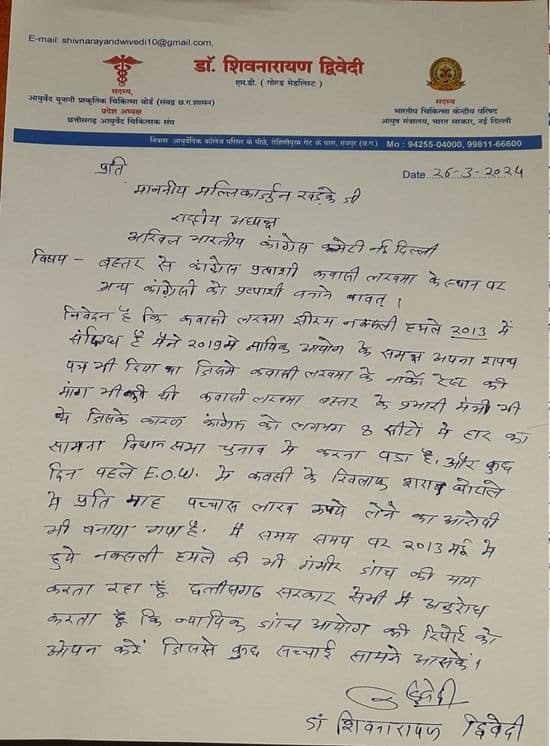 E-mail: shivnarayandwivedi10@gmail.com,
डॉ. शिवनारायण द्विवेदी
एम.डी. ( गोल्ड मेडलिस्ट )
सदस्य,
आयुर्वेद यूनानी प्राकृतिक चिकित्सा बोर्ड (संबद्ध छ.ग.शासन)
प्रदेश अध्यक्ष
छत्तीसगढ़ आयुर्वेद चिकित्सक संघ
सदस्य
भारतीय चिकित्सा केन्द्रीय परिषद
आयुष मंत्रालय, भारत सरकार, नई दिल्ली
निवास आयुर्वेदिक कॉलेज परिसर के पीछे, रोहिणीपुरम गेट के पास, रायपुर (छ.ग.) Mo : 94255-04000, 99811-66600
Date 26-3-2024
प्रति
माननीय मल्लिकार्जुन खड़के जी
राष्ट्रीय अध्यक्ष
अखिल भारतीय कांग्रेस कमेटी नई दिल्ली
विषय - बस्तर से कांग्रेस प्रत्याशी कवासी लखमा के स्थान पर
अन्य कांग्रेसी को प्रत्याशी बनाने बाबत् ।
निवेदन है कि कवासी लखमा झीरम नक्सली हमले 2013 में
संदिग्ध है मैंने 2019 मे न्यायिक आयोग के समक्ष अपना शपथ
पत्र भी दिया था जिसमे कवासी लखमा के नार्को टेस्ट की
मांग भी की थी कवासी लखमा बस्तर के प्रभारी मंत्री भी
थे जिसके कारण कांग्रेस को लगभग 8 सीटों मे हार का
सामना विधान सभा चुनाव मे करना पडा है. और कुछ
दिन पहले E.O.W. मे कवासी के खिलाफ शराब घोटाले
मे प्रति माह पच्चास लाख रूपये लेने का आरोपी
भी बनाया गया है. मै समय समय पर 2013 मई मे
हुये नक्सली हमले की भी गंभीर जांच की मांग
करता रहा है छत्तीसगढ सरकार सेभी मै अनुरोध
करता है कि न्यायिक जांच आयोग की रिपोर्ट को
ओपन करें जिससे कुछ सच्चाई सामने आसकें।
द्विवेदी
डॉ शिवनारायण द्विवेदी